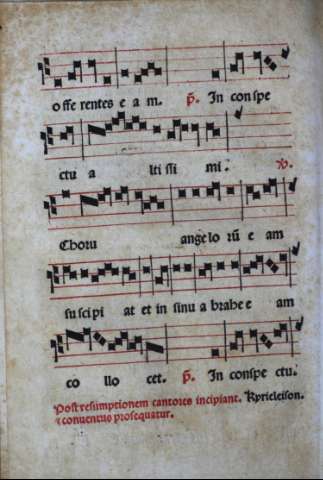 offe rentes e a m. p̄. In conspe
ctu a lti ssi mi. ℣.
Choru angelo rū e am
su sci pi at et in sinu a brahe e am
co llo cet. p̄. In conspe ctu.
Post resumptionem cantores incipiant. Kyrieleison.
⁊ conuentus prosequatur.